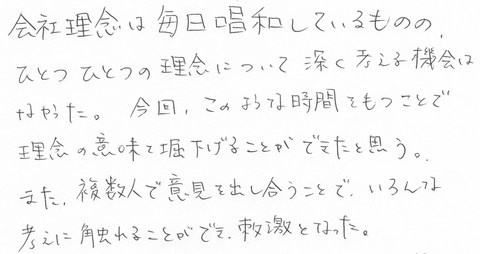 会社理念は毎日唱和しているものの、
ひとつひとつの理念について深く考える機会は
なかった。今回、このような時間をもつことで
理念の意味を堀下げることができたと思う。
また、複数人で意見を出し合うことで、いろんな
考えに触れることができ、刺激となった。